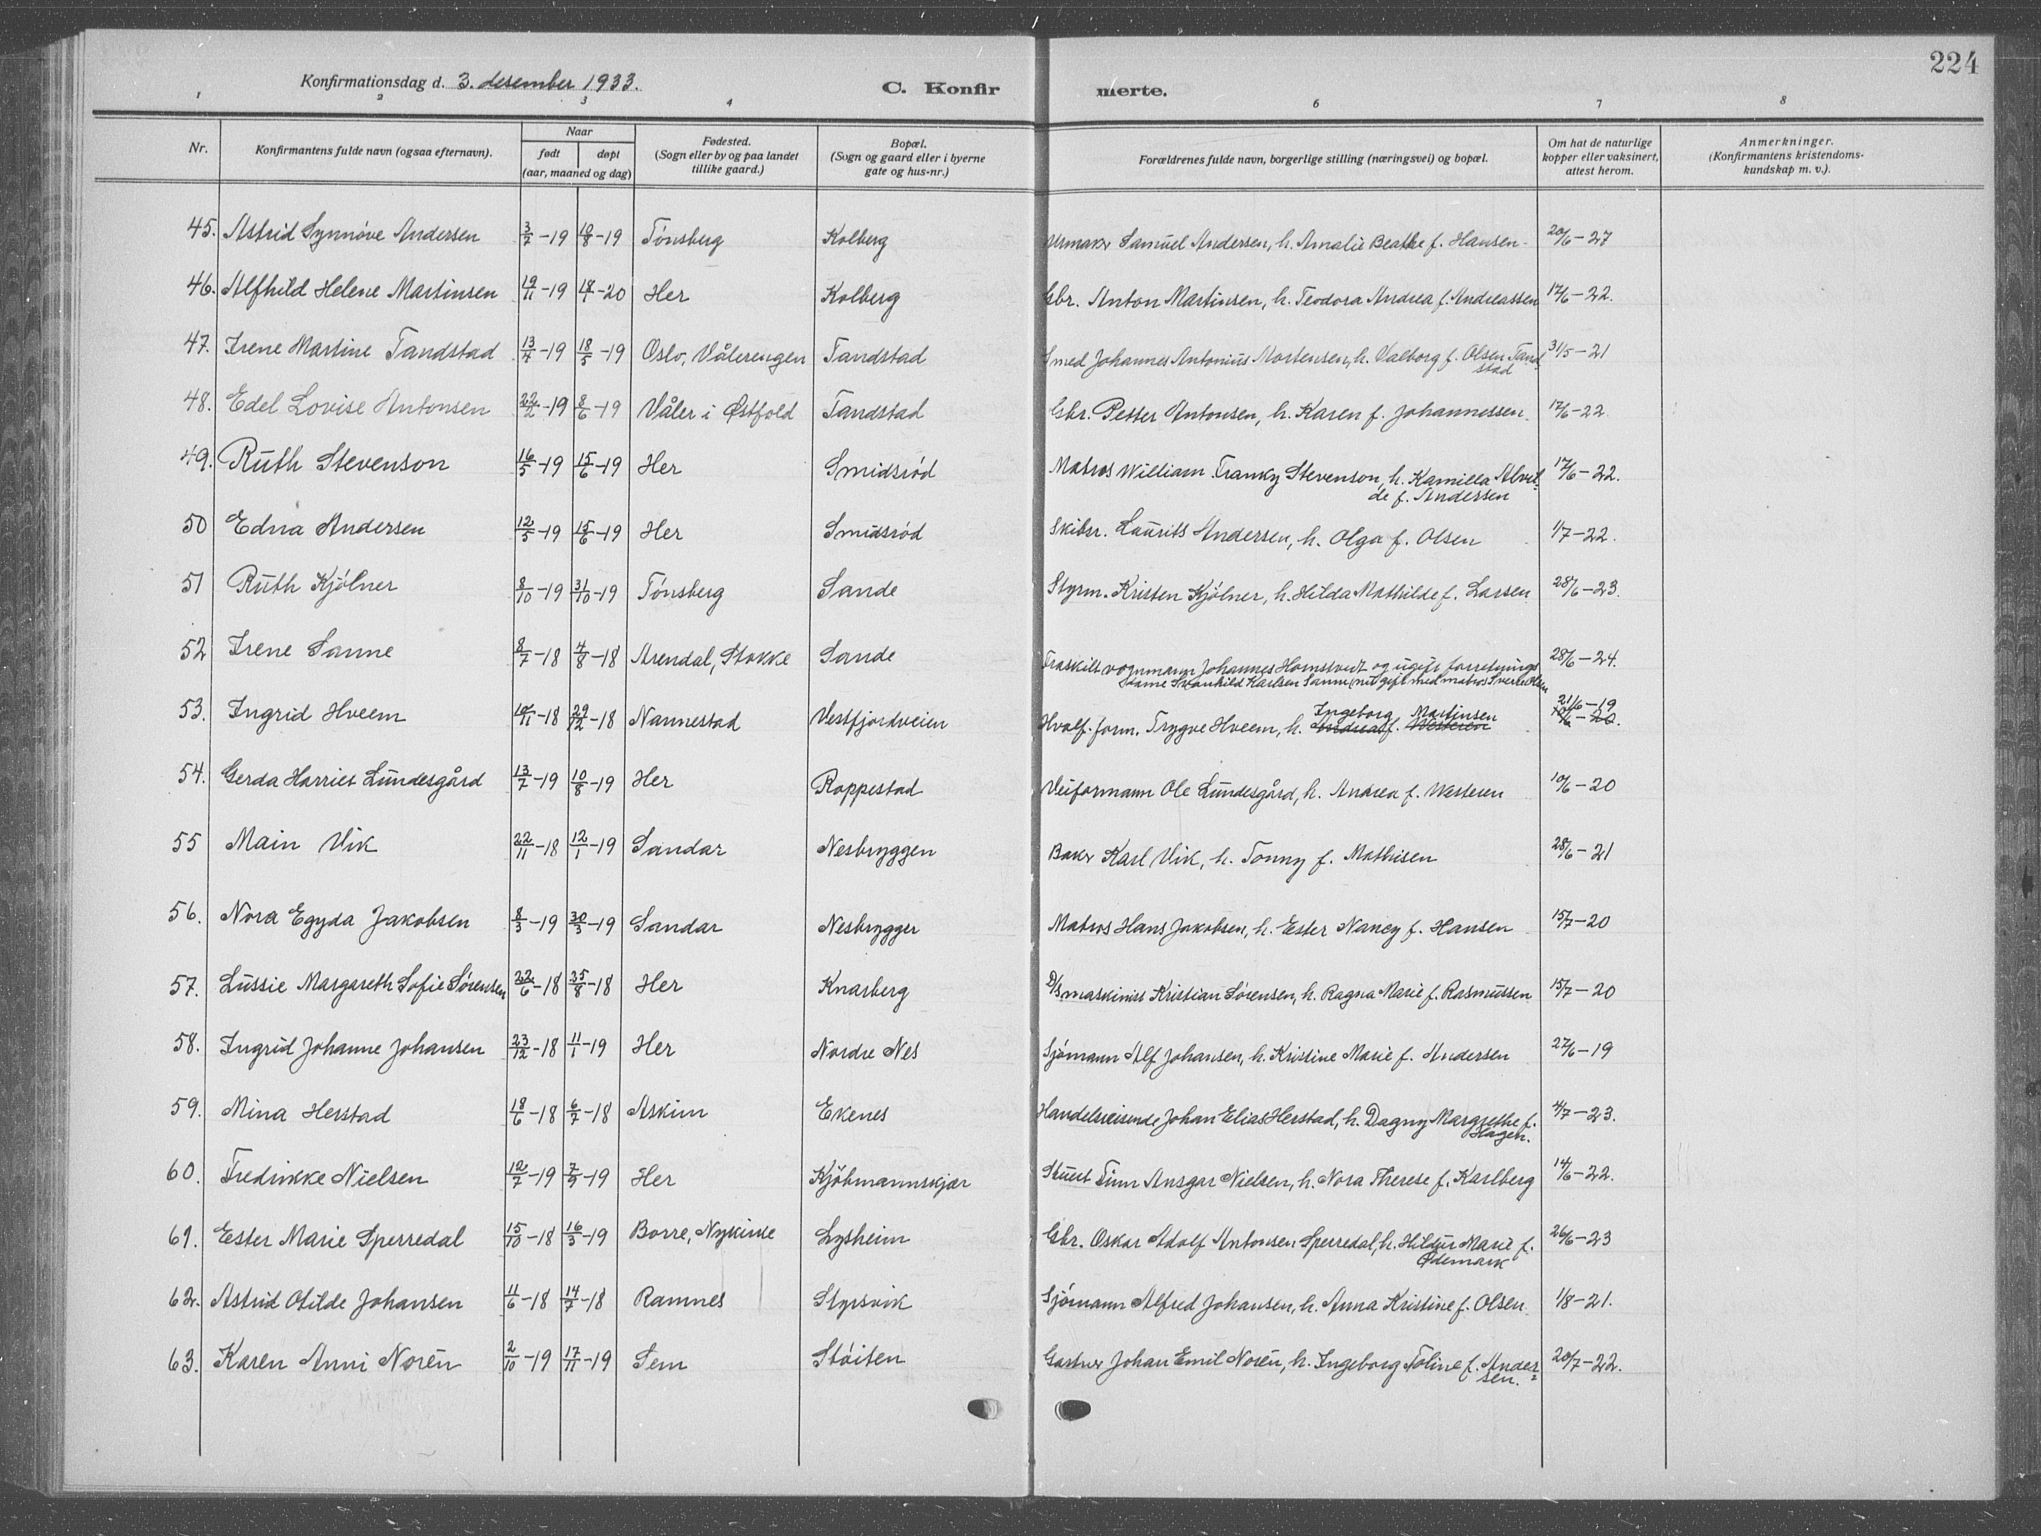 224
Konfirmationsdag d. 3. desember 1933. C. Konfirmerte.
1 2 3 4 6 7 8
Nr. Konfirmantens fulde navn (ogsaa efternavn). Naar født døpt (aar, maaned og dag) Fødested. (Sogn eller by og paa landet tillike gaard.) Bopæl. (Sogn og gaard eller i byerne gate og hus-nr.) Forældrenes fulde navn, borgerlige stilling (næringsvei) og bopæl. Om hat de naturlige kopper eller vaksinert, attest herom. Anmerkninger. (Konfirmantens kristendoms-kundskap m. v.).
45. Astrid Synnøve Andersen 3/7-19 10/8-19 Tønsberg Kolberg Urmaker Samuel Andersen, h. Amalie Beathe f. Hansen 20/6-27
46. Alfhild Helene Martinsen 19/11-19 18/1-20 Her Kolberg Gbr. Anton Martinsen, h. Teodora Andrea f. Andreassen 17/6-22.
47. Irene Martine Tandstad 13/4-19 18/5-19 Oslo, Vålerengen Tandstad Smed Johannes Antonius Mortensen, h. Valborg f. Olsen Tandstad 31/5-21
48. Edel Lovise Antonsen 22/2-19 8/6-19 Våler i Østfold Tandstad Gbr. Petter Antonsen, h. Karen f. Johannessen. 17/6-22
49. Ruth Stevenson 16/5-19 15/6-19 Her Smidsrød Matros William Franky Stevenson, h. Kamilla Alvilde f. Andersen 17/6-22.
50 Edna Andersen 12/5-19 15/6-19 Her Smidsrød Skibsr. Laurits Andersen, h. Olga f. Olsen 1/7-22.
51 Ruth Kjølner 8/10-19 31/10-19 Tønsberg Sande Styrm. Kristen Kjølner, h. Hilda Mathilde f. Larsen 28/6-23.
52 Irene Sanne 8/7-18 4/8-18 Arendal, Stokke Sande Fraskilt vognmann Johannes Homstvedt og ugift forretningsdame Svanhild Karlsen Sanne (nu gift med matros Sverre Olsen 28/6-24.
53. Ingrid Hveem 10/11-18 29/12-18 Nannestad Vestfjordveien Hvalf. form. Trygve Hveem, h. Ingeborg f. Martinsen 21/6-19
54. Gerda Harriet Lundesgård 13/7-19 10/8-19 Her Roppestad Veiformann Ole Lundesgård, h. Andrea f. Westeren 10/6-20
55 Main Vik 22/11-18 12/1-19 Sandar Nesbryggen Baker Karl Vik, h. Tonny f. Mathisen 28/6-21
56. Nora Egyda Jakobsen 8/3-19 30/3-19 Sandar Nesbrygger Matros Hans Jakobsen, h. Ester Nancy f. Hansen 15/7-20
57. Lussie Margareth Sofie Sørensen 22/6-18 25/8-18 Her Knarberg D/S maskinist Kristian Sørensen, h. Ragna Marie f. Rasmussen 15/7-20
58. Ingrid Johanne Johansen 23/12-18 11/1-19 Her Nordre Nes Sjømann Alf Johansen, h. Kristine Marie f. Andersen 27/6-19
59. Mina Herstad 18/6-18 6/7-18 Askim Ekenes Handelsreisende Johan Elias Herstad, h. Dagny Margrethe f. Hagen. 4/7-23.
60. Fredrikke Nielsen 12/7-19 7/9-19 Her Kjøbmannskjær Stuert Finn Ansgar Nielsen, h. Nora Therese f. Karlberg 14/6-22.
61. Ester Marie Sperredal 15/10-18 16/3-19 Borre, Nykirke Lysheim Gbr. Oskar Adolf Antonsen Sperredal, h. Hildur Marie f. Ødemark 26/6-23
62. Astrid Otilde Johansen 11/6-18 14/7-18 Ramnes Styrsvik Sjømann Alfred Johansen, h. Anna Kristine f. Olsen 1/8-21.
63. Karen Anni Norén 2/10-19 17/11-19 Sem Støiten Gartner Johan Emil Norén, h. Ingeborg Toline f. Andersen. 20/7-22.